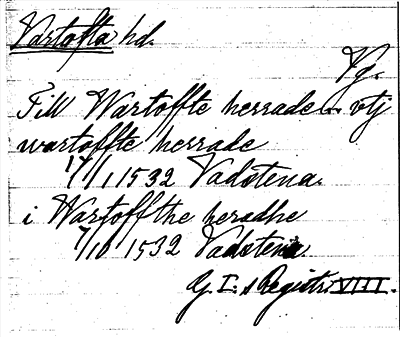 Vartofta hd.
Vg.
Till Wartoffte herrade... vtj
wartoffte herrade
17/1 1532 Vadstena.
i Wartoffthe heradhe
7/10 1532 Vadstena.
G. I:s Registr. VIII.